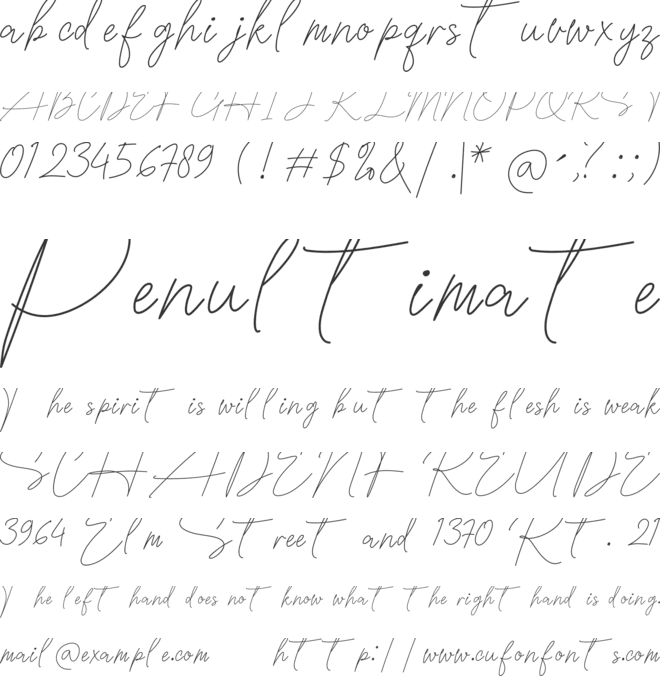 abcdefghijkl mnopqrst uvwxyz
ABCDEFGHIJKLMNOPQRS
0123456789 (!#$%&/.|*@´,?:;)
Penultimate
The spirit is willing but the flesh is weak
SCHADENFREUDE
3964 Elm Street and 1370 Rt. 21
The left hand does not know what the right hand is doing.
mail@example.com http://www.cufonfonts.com